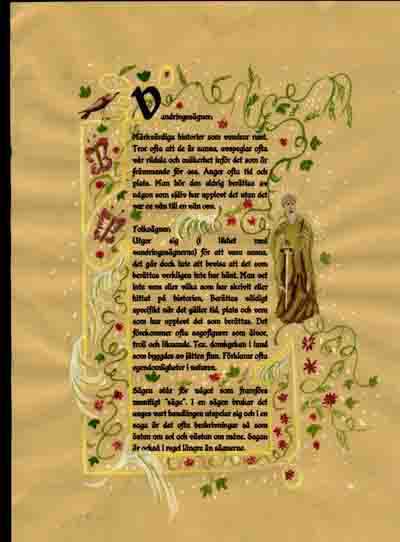 Vandringssägnen:
Märkvärdiga historier som vandrar runt.
Tror ofta att de är sanna, avspeglar ofta
vår rädsla och osäkerhet inför det som är
främmande för oss. Anger ofta tid och
plats. Man hör den aldrig berättas av
någon som själv har upplevt det utan det
var en vän till en vän osv.
Folksägnen:
Utger sig (i likhet med
vandringssägnerna) för att vara sanna,
det går dock inte att bevisa att det som
berättas verkligen inte har hänt. Man vet
inte vem eller vilka som har skrivit eller
hittat på historien. Berättas väldigt
specifikt när det gäller tid, plats och vem
som har upplevt det som berättas. Det
förekommer ofta sagofigurer som älvor,
troll och liknande. T.ex. domkyrkan i lund
som byggdes av jätten finn. Förklarar ofta
egendomligheter i naturen.
Sägen står för något som framförs
muntligt "säga". I en sägen brukar det
anges vart handlingen utspelar sig och i en
saga är det ofta beskrivningar så som
östan om sol och västan om måne. Sagan
är också i regel längre än sägnerna.